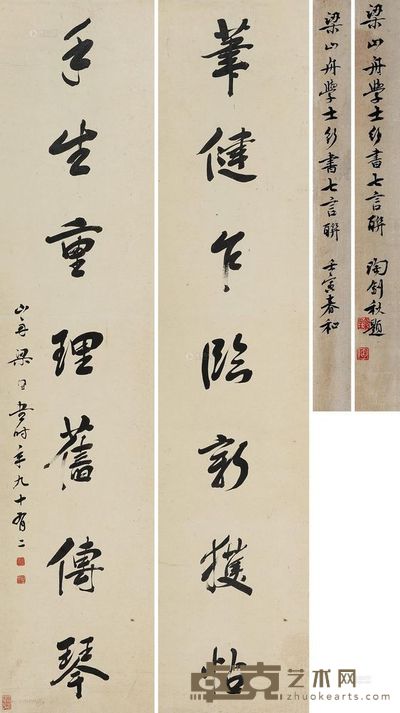 梁山舟學士行書七言聯 陶劍秋題
梁山舟學士行書七言聯 壬寅春和
筆健乍臨新獲帖
手生重理舊傳琴
山舟梁同書時年九十有二
卓克艺术网
www.zhuokearts.com